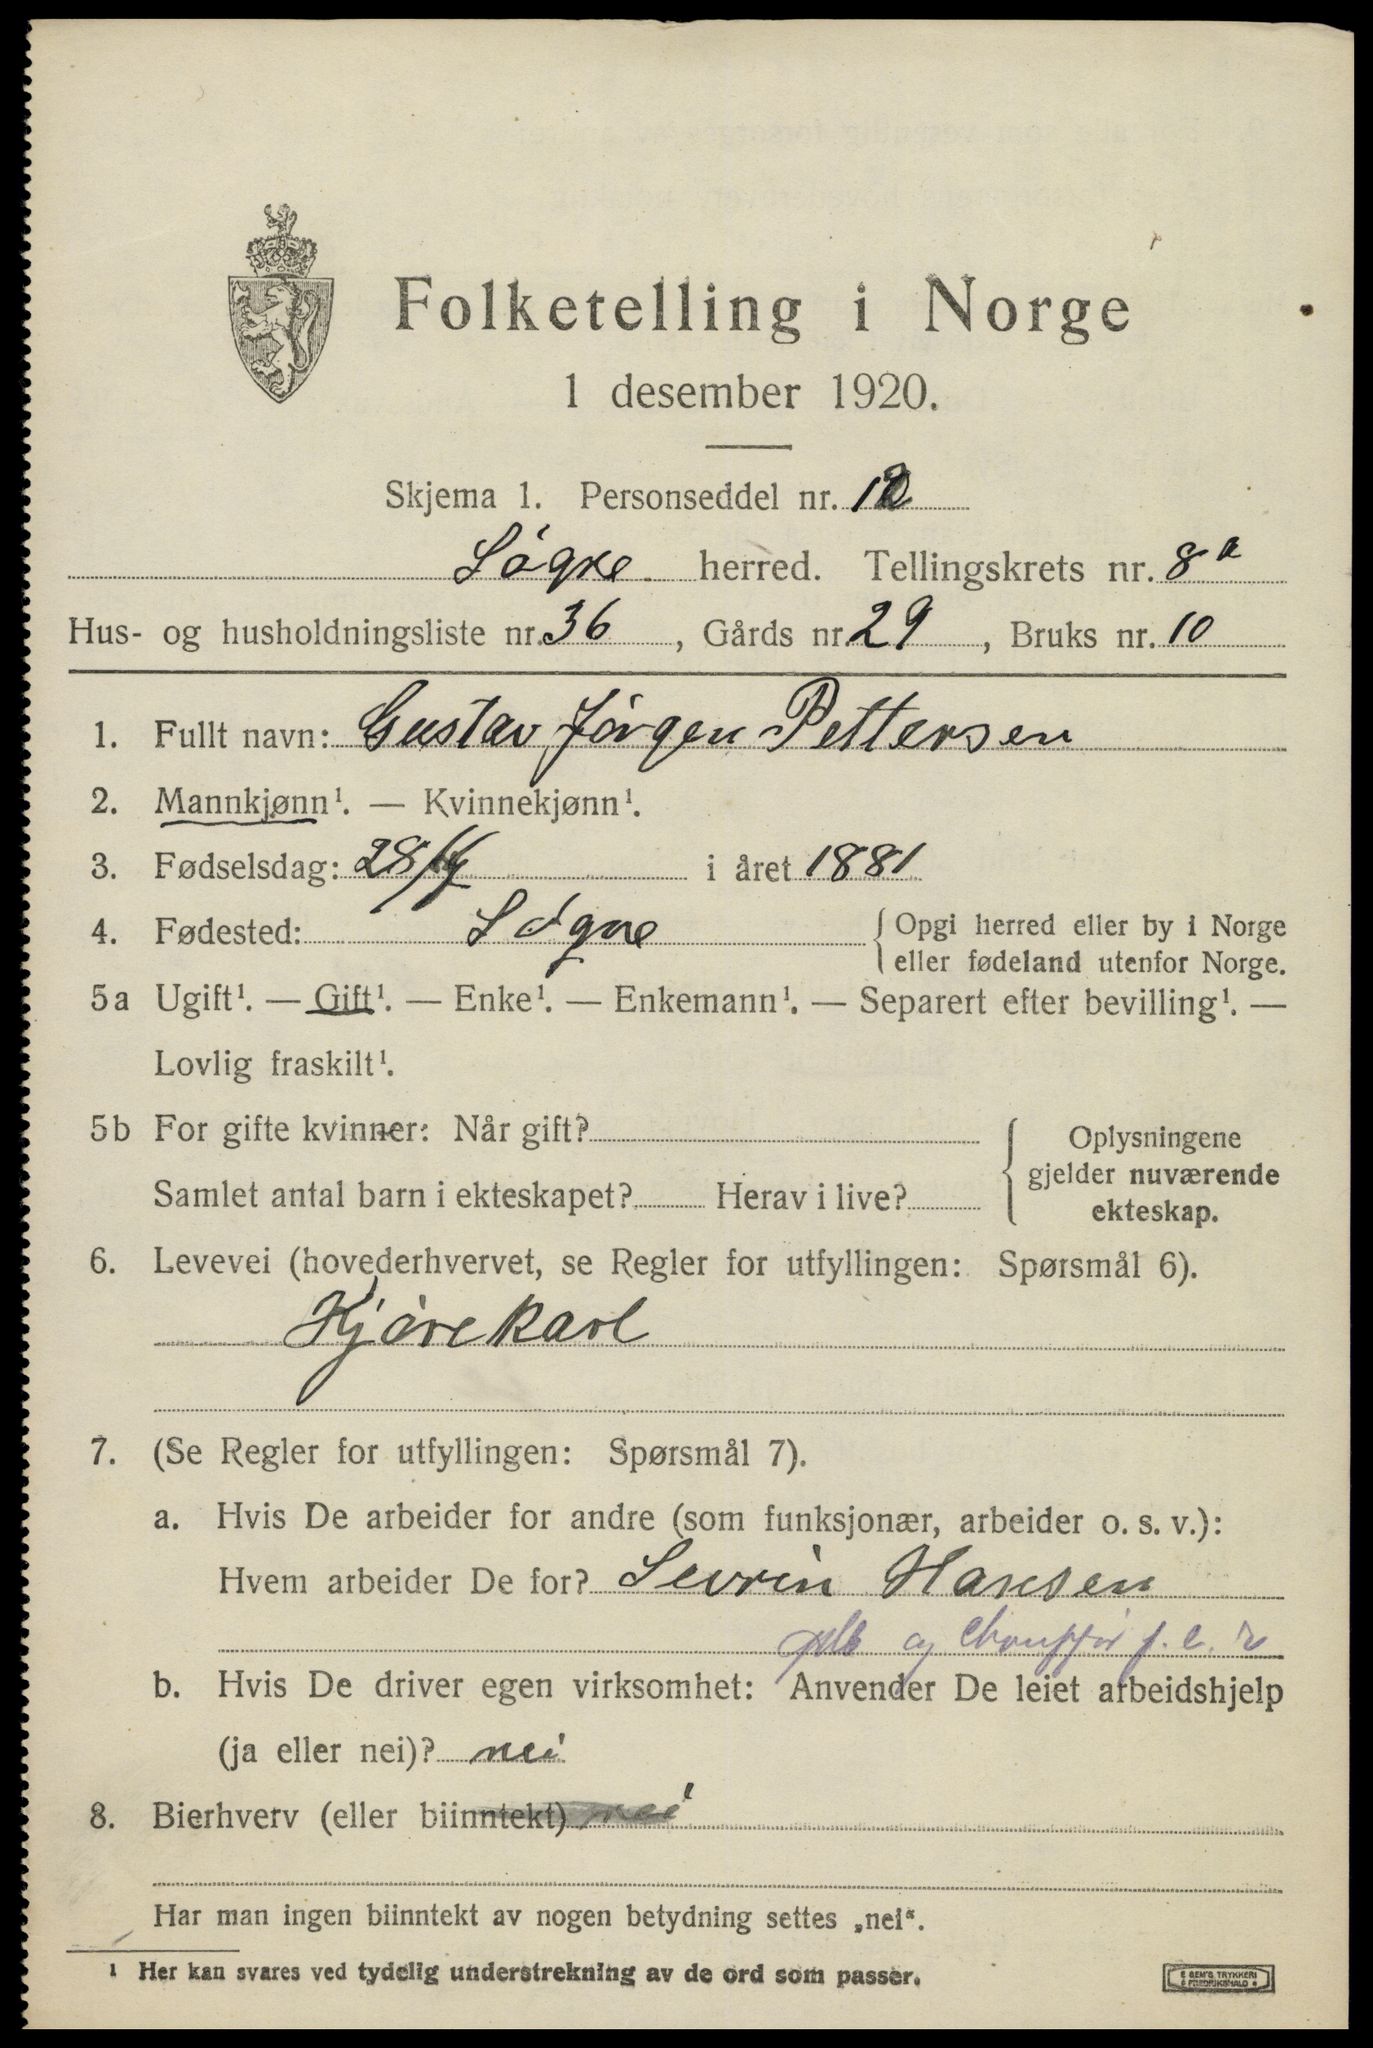 Folketelling i Norge
1 desember 1920.
Skjema 1. Personseddel nr.
Søgne herred. Tellingskrets nr. 8a
Hus- og husholdningsliste nr. 36, Gårds nr. 29, Bruks nr. 10
1. Fullt navn: Gustav Jørgen Pettersen
2. Mannkjønn¹. — Kvinnekjønn¹.
3. Fødselsdag: 28/ i året 1881
4. Fødested: Søgne { Opgi herred eller by i Norge
eller fødeland utenfor Norge.
5a Ugift¹. — Gift¹. — Enke¹. — Enkemann¹. — Separert efter bevilling¹. —
Lovlig fraskilt¹.
5b For gifte kvinner: Når gift? { Oplysningene
gjelder nuværende
Samlet antal barn i ekteskapet? Herav i live?
ekteskap.
6. Levevei (hovederhvervet, se Regler for utfyllingen: Spørsmål 6).
Kjørekarl
7. (Se Regler for utfyllingen: Spørsmål 7).
a. Hvis De arbeider for andre (som funksjonær, arbeider o. s. v.):
Hvem arbeider De for? Sevrin Hansen
og
b. Hvis De driver egen virksomhet: Anvender De leiet arbeidshjelp
(ja eller nei)? nei
8. Bierhverv (eller biinntekt) nei
Har man ingen biinntekt av nogen betydning settes „nei“.
¹ Her kan svares ved tydelig understrekning av de ord som passer.
E SEM'S TRYKKERI
FREDRIKSHALD